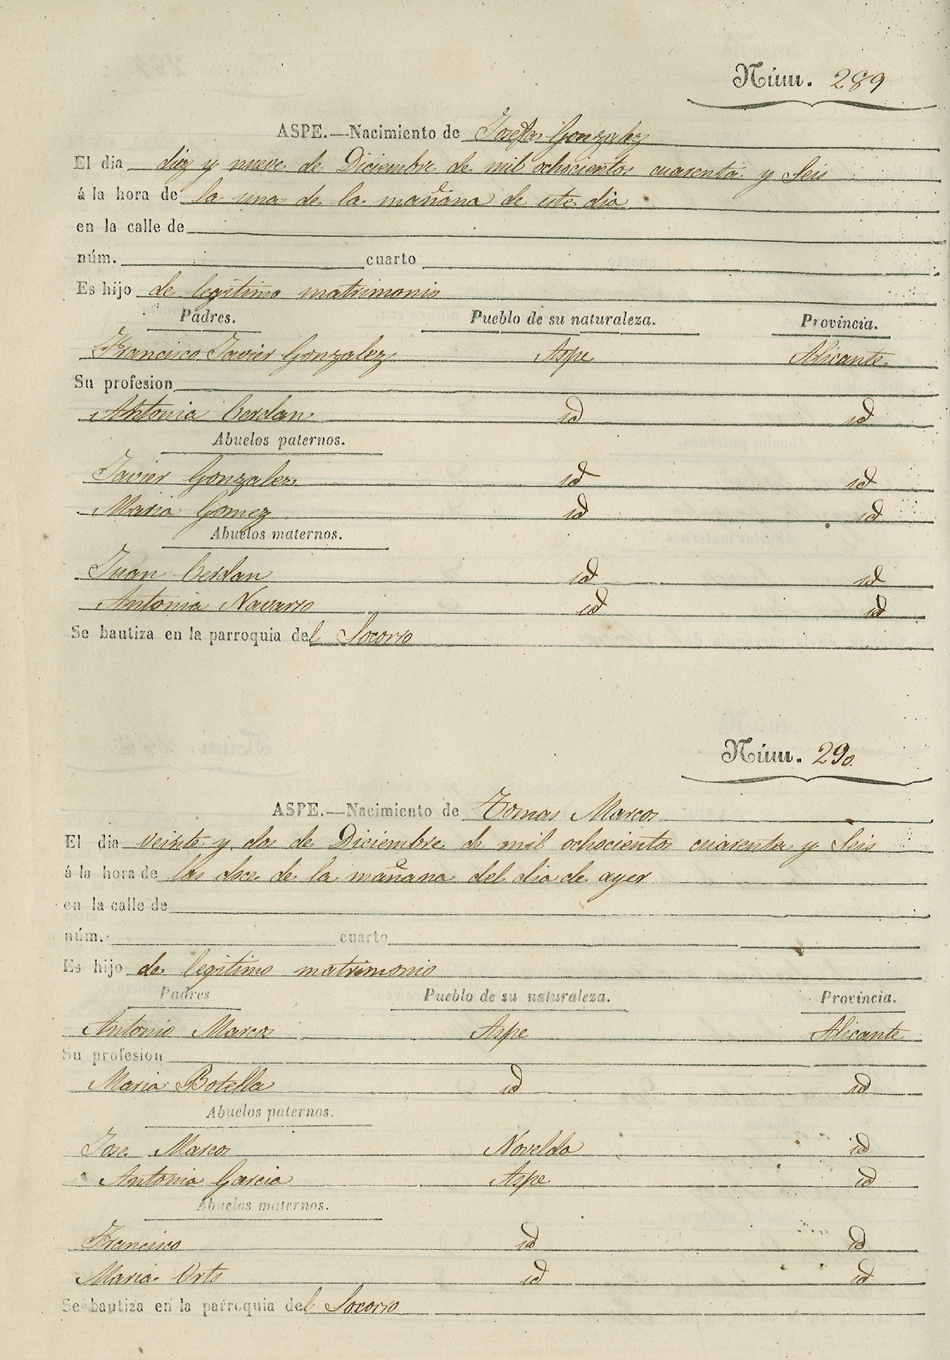 Núm. 289
ASPE.—Nacimiento de Josefa Gonzalez
El dia diez y nueve de Diciembre de mil ochocientos cuarenta y Seis
á la hora de la una de la mañana de este dia
en la calle de
núm. cuarto
Es hijo de legitimo matrimonio
Padres. Pueblo de su naturaleza. Provincia.
Francisco Javier Gonzalez Aspe Alicante
Su profesion
Antonia Cerdan id id
Abuelos paternos.
Javier Gonzalez id id
Maria Gomez id id
Abuelos maternos.
Juan Cerdan id id
Antonia Navarro id id
Se bautiza en la parroquia del Socorro
Núm. 290
ASPE.—Nacimiento de Tomas Marcos
El dia veinte y dos de Diciembre de mil ochocientos cuarenta y Seis
á la hora de las doce de la mañana del dia de ayer
en la calle de
núm. cuarto
Es hijo de legitimo matrimonio
Padres Pueblo de su naturaleza. Provincia.
Antonio Marcos Aspe Alicante
Su profesion
Maria Botella id id
Abuelos paternos.
Jose Marcos Novelda id
Antonia Garcia Aspe id
Abuelos maternos.
Francisco id id
Maria Orts id id
Se bautiza en la parroquia del Socorro